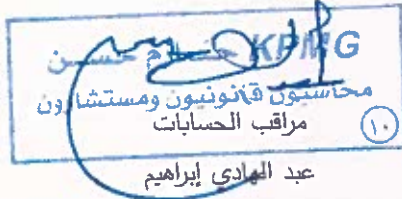 KPMG حازم حسن
محاسبون قانونيون ومستشارون
مراقب الحسابات
(١٠)
عبد الهادي إبراهيم